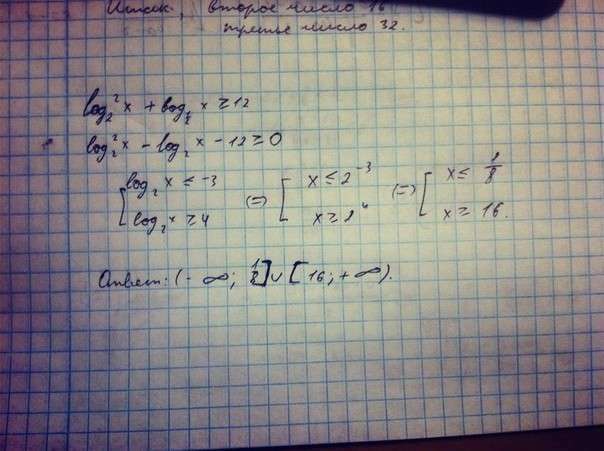 второе число 16
третье число 32.
log₂²x + log_½ x ≥ 12
log₂²x - log₂ x - 12 ≥ 0
[ log₂ x ≤ -3 (=) [ x ≤ 2⁻³ (=) [ x ≤ 1/8
log₂ x ≥ 4 x ≥ 2⁴ x ≥ 16.
Ответ: (- ∞; 1/8] ∪ [16; + ∞).